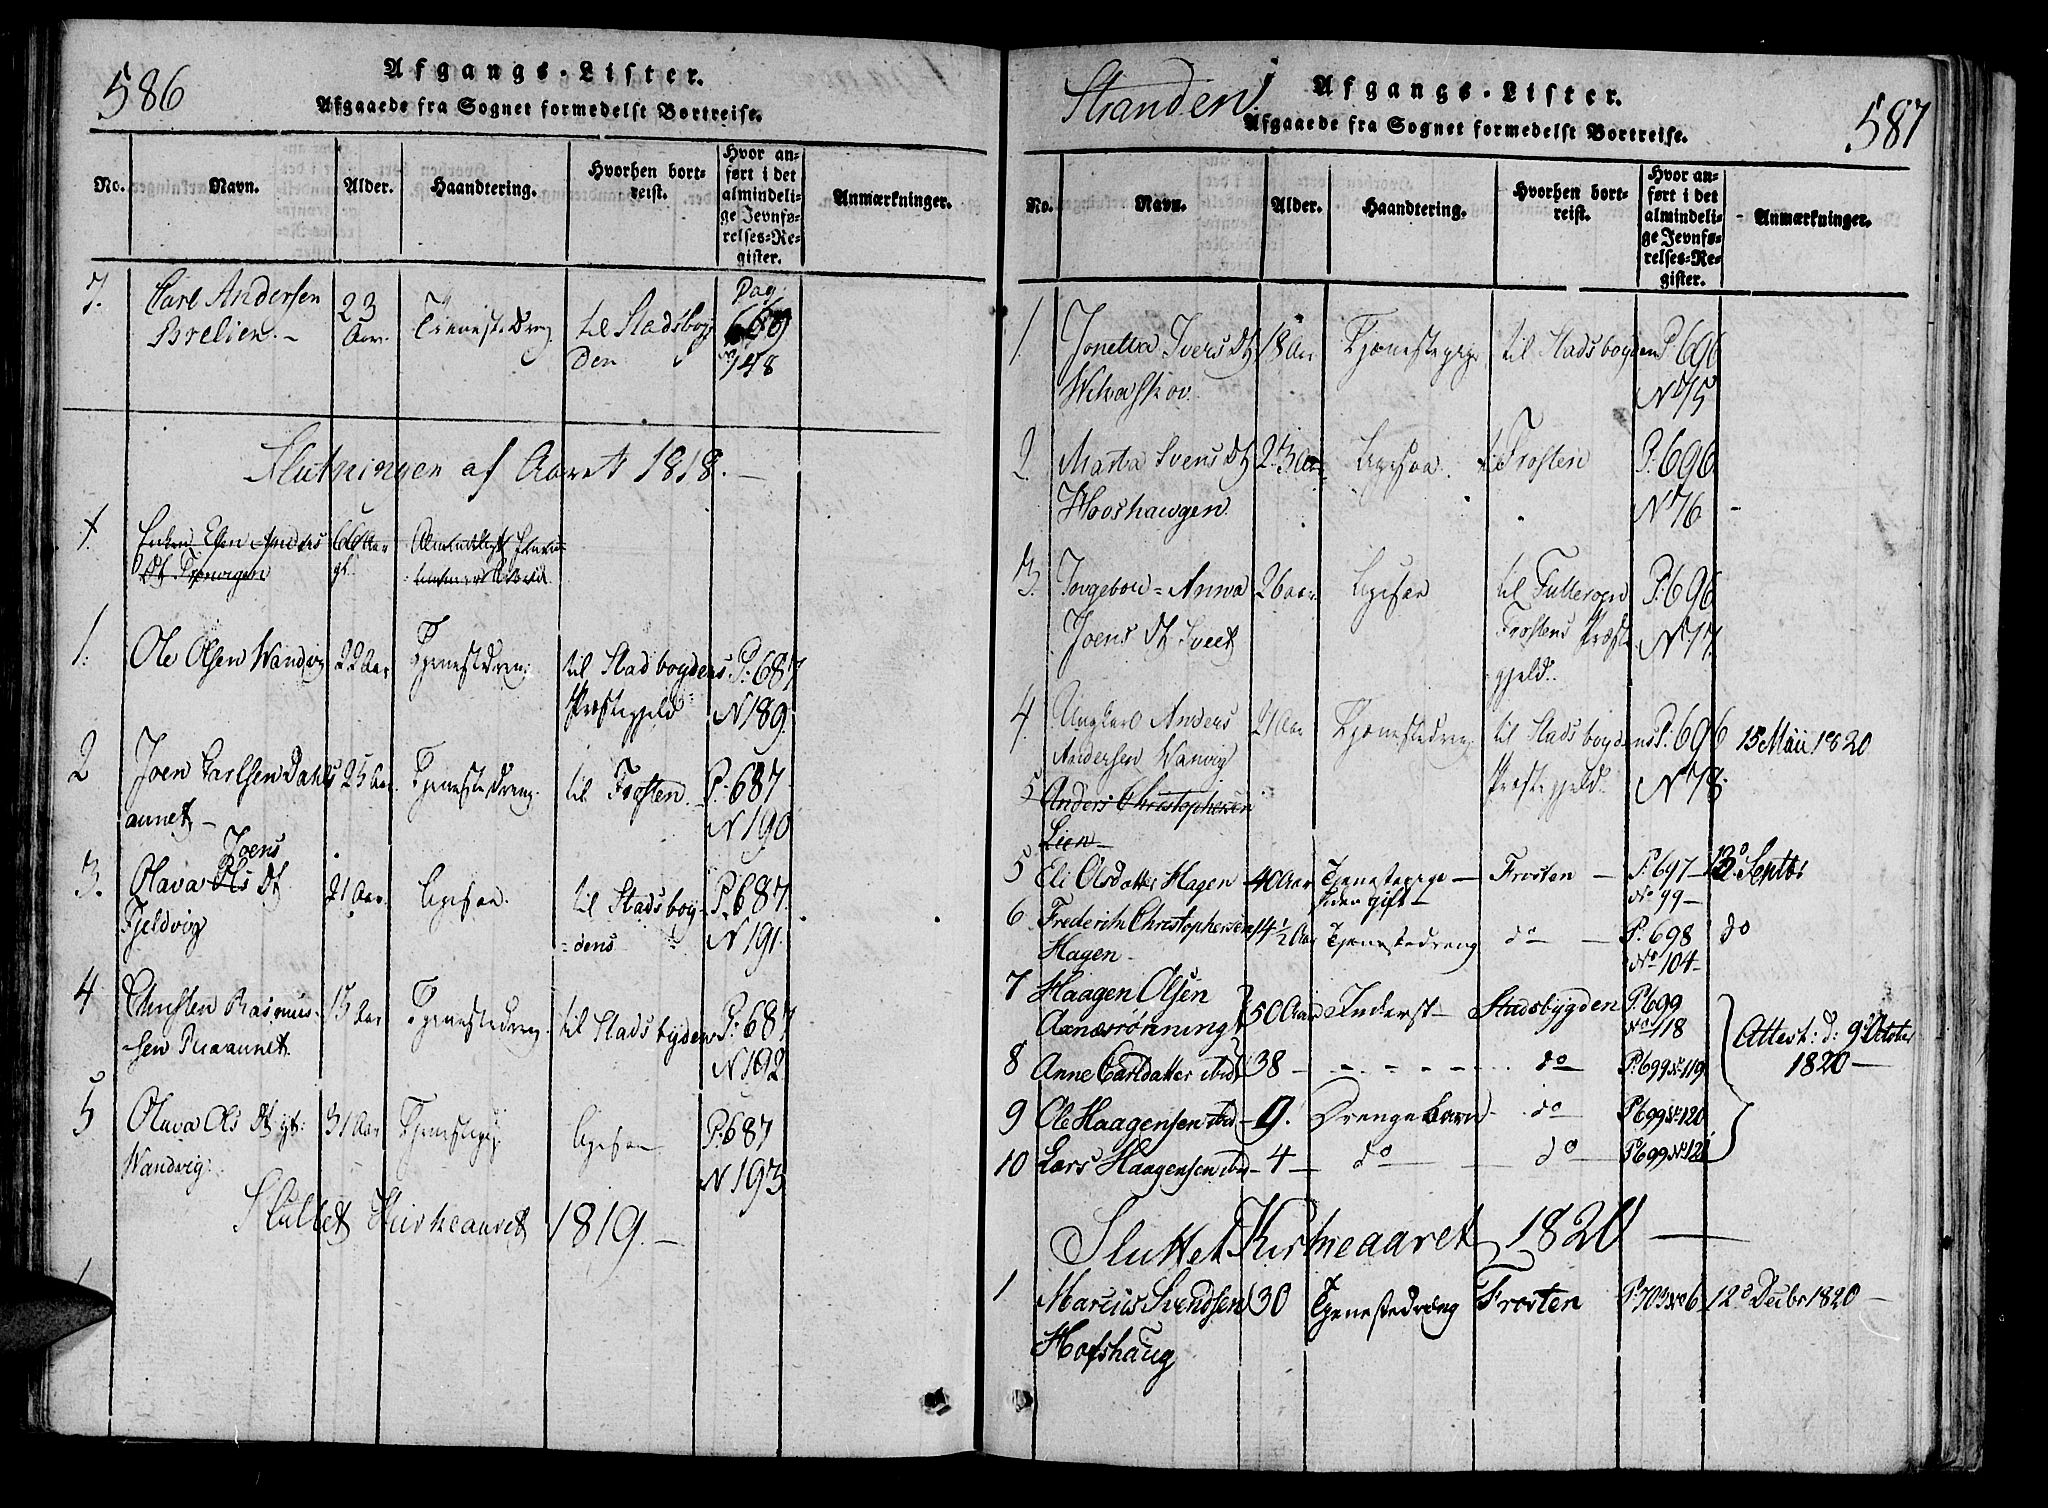 586
Afgangs-Lister.
Afgaaede fra Sognet formedelst Bortreise.
No. Navn. Alder. Haandtering. Hvorhen bortreist. Hvor anført i det almindelige Jevnførelses-Register. Anmærkninger.
7. Carl Andersen 23 Tienestedreng til Stadsboyg Pag: 669
Brelien.- Aar. den No 148
Slutningen af Aaret 1818.-
1. Enken Ellen Anders 66 Aar Almindeligt
Dt. gl.
1. Ole Olsen Wandvig 22 Aar Tjenestedreng til Stadboydens P: 687
Præstegjeld N 189.
2 Joen Carlsen Dahls 25 Aar. Tjenestedreng. til Frosten. P: 687.
aunet,- N 190
Joens
3. Olava Ols Dt. 21 Aar. Ligesaa. til Stadsboy- P. 687.
Fjeldvig =dens N 191.
4 Christen Rasmus- 15 Aar Tjenestedreng. til Stadsbyden P: 687
-sen N 192.
5 Olava Ols Dt. gt: 31 Aar Tjenestepige ligesaa P: 687
Wandvig. N 193
Sluttet Kirkeaaret 1819.-
1
Stranden! Afgangs-Lister. 587
Afgaaede fra Sognet formedelst Bortreise.
No. Navn. Alder. Haandtering. Hvorhen bortreist. Hvor anført i det almindelige Jevnførelses-Register. Anmærkninger.
1. Jonetta Ivers Dt. 18 Aar Tjenestepige til Stadsboyden P. 696
N 75
2. Marta Svens Dt. 23 Aar Ligesaa. t. Frosten P: 696
Hooshaugen. N 76 -
3. Ingebor=Anna 26 aar. Ligesaa til P: 696
Joens Dt. Frostens Præste N 77.
gjeld.
4. Ungkarl Anders 21 Aar Tjenestedreng til Stadsboydens P: 696 15 Maii 1820
Andersen Wanvig Præstegjeld. N 78.
5 Anders Christophersen
Lien-
5 Eli Olsdatter Hagen - 40 Aar Tjenestepige - Frosten - P: 697 - 12 Septbr
No 99-
6 Frederik Christophersen 14½ Aar Tjenestedreng do - P: 698 do
Hagen- No 104-
7 Haagen Olsen } 50 Aar Inderst- Stadsbygden P: 699
Aunesrønning No 118 } Attest: d: 9 October
8 Anne Carldatter ibid 38 - do P: 699 No 119 1820-
9 Ole Haagensen ibd - 9. Drengebarn - do P 699 No 120
10 Lars Haagensen ibd - 4 - do - do P 699 No 121
Sluttet Kirkeaaret 1820 -
1 Marcus Svendsen 30 Tjenestedreng Frosten P: 703 No 6 12 Decbr 1820 -
Hofshaug